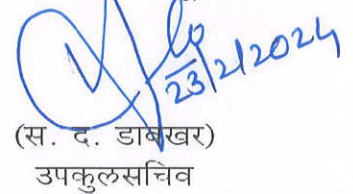 23/2/2024
(स. द. डाबखर)
उपकुलसचिव